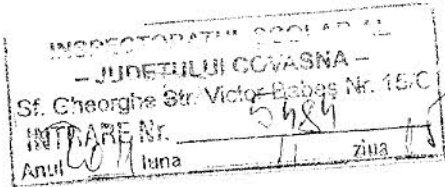 INSPECTORATUL ȘCOLAR AL
– JUDEȚULUI COVASNA –
Sf. Gheorghe Str. Victor Babeș Nr. 15/C
INTRARE Nr. 5484
Anul luna 11 ziua